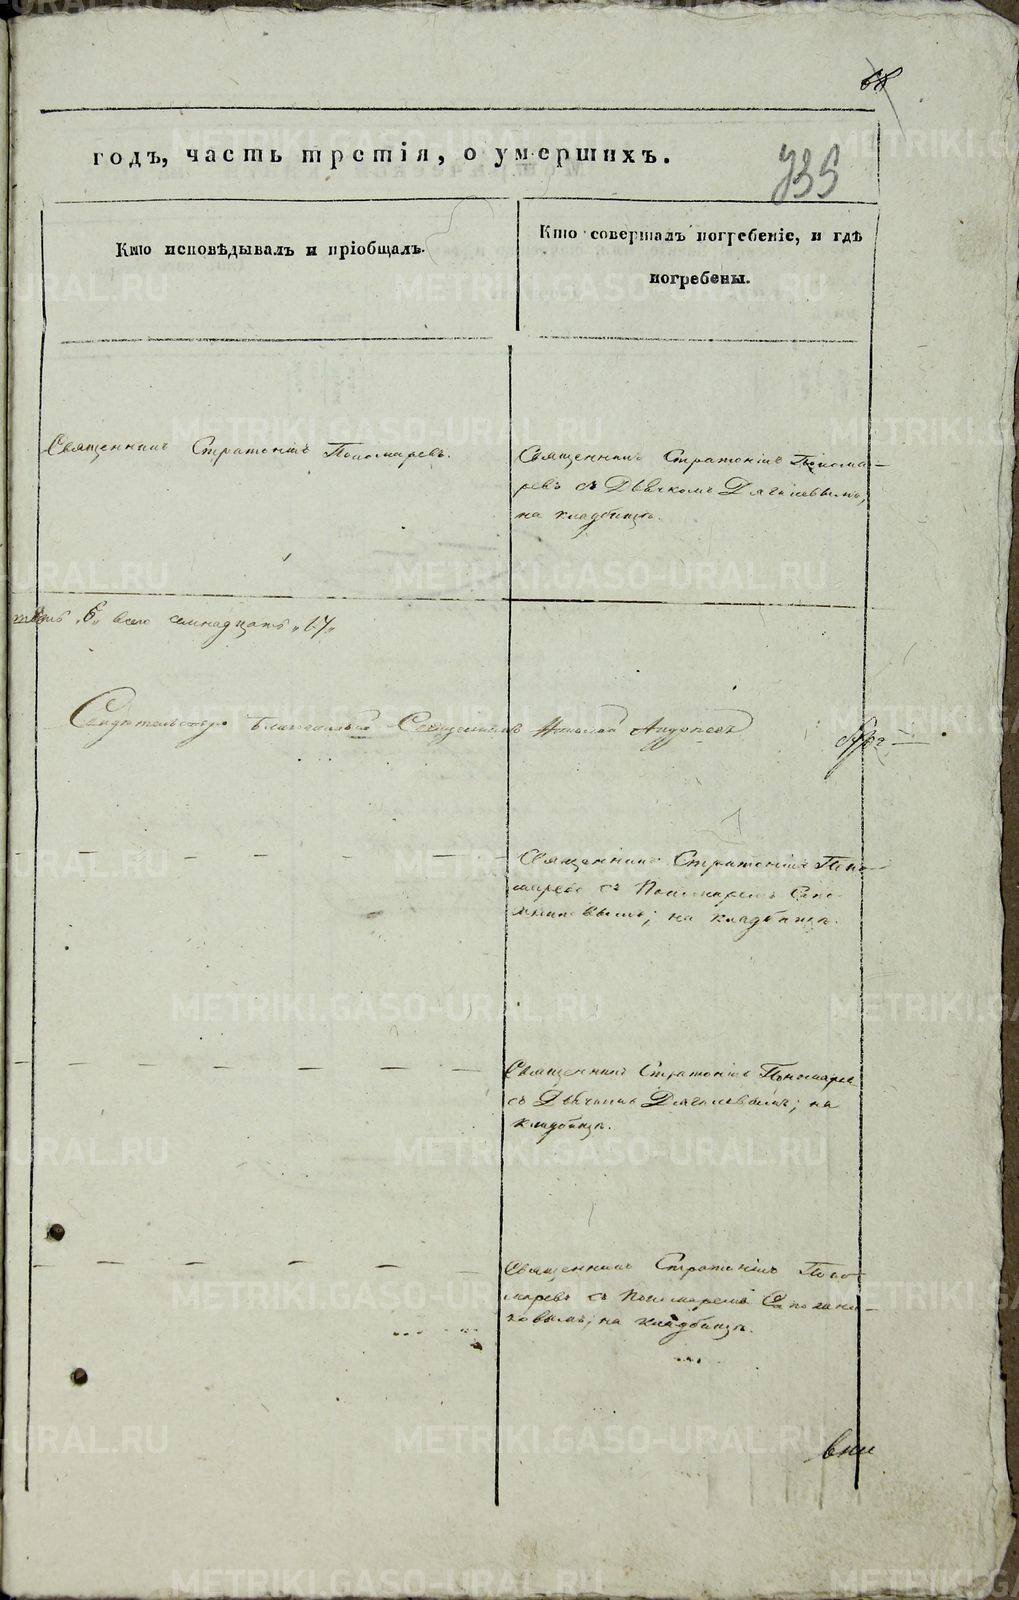 68
годъ, часть третія, о умершихъ.
735
Кто исповѣдывалъ и пріобщалъ.
Кто совершалъ погребеніе, и гдѣ
погребены.
Священникъ Стратоникъ Пономаревъ.
Священникъ Стратоникъ Понома-
ревъ съ Дьячкомъ Дягилевымъ,
на кладбищѣ.
„6„ всего семнадцать „17„
Свидѣтельствовалъ Благочинный Священникъ Андреевъ
Священникъ Стратоникъ Поно-
маревъ съ Пономаремъ Сапо-
жниковымъ; на кладбищѣ.
Священникъ Стратоникъ Пономарев
съ Дьячкомъ Дягилевымъ; на
кладбищѣ.
Священникъ Стратоникъ Поно-
маревъ съ Пономаремъ Сапожни-
ковымъ; на кладбищѣ.
METRIKI.GASO-URAL.RU